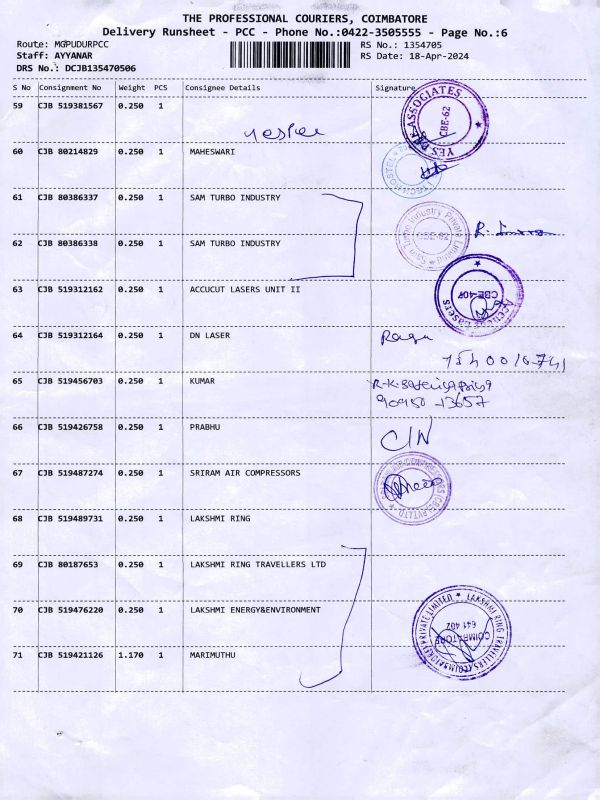 THE PROFESSIONAL COURIERS, COIMBATORE
Delivery Runsheet - PCC - Phone No.:0422-3505555 - Page No.:6
Route: MGPUDURPCC
Staff: AYYANAR
DRS No.: DCJB135470506
RS No.: 1354705
RS Date: 18-Apr-2024
S No Consignment No Weight PCS Consignee Details Signature
59 CJB 519381567 0.250 1
YES ASSOCIATES CBE-62
60 CJB 80214829 0.250 1 MAHESWARI
61 CJB 80386337 0.250 1 SAM TURBO INDUSTRY
Sam Turbo Industry Private Limited CBE-62
62 CJB 80386338 0.250 1 SAM TURBO INDUSTRY
63 CJB 519312162 0.250 1 ACCUCUT LASERS UNIT II
Accucut Lasers CBE-407
64 CJB 519312164 0.250 1 DN LASER
65 CJB 519456703 0.250 1 KUMAR
90950-13657
66 CJB 519426758 0.250 1 PRABHU
C/N
67 CJB 519487274 0.250 1 SRIRAM AIR COMPRESSORS
68 CJB 519489731 0.250 1 LAKSHMI RING
69 CJB 80187653 0.250 1 LAKSHMI RING TRAVELLERS LTD
70 CJB 519476220 0.250 1 LAKSHMI ENERGY&ENVIRONMENT
LAKSHMI RING TRAVELLERS (COIMBATORE) PRIVATE LIMITED COIMBATORE 641 407
71 CJB 519421126 1.170 1 MARIMUTHU